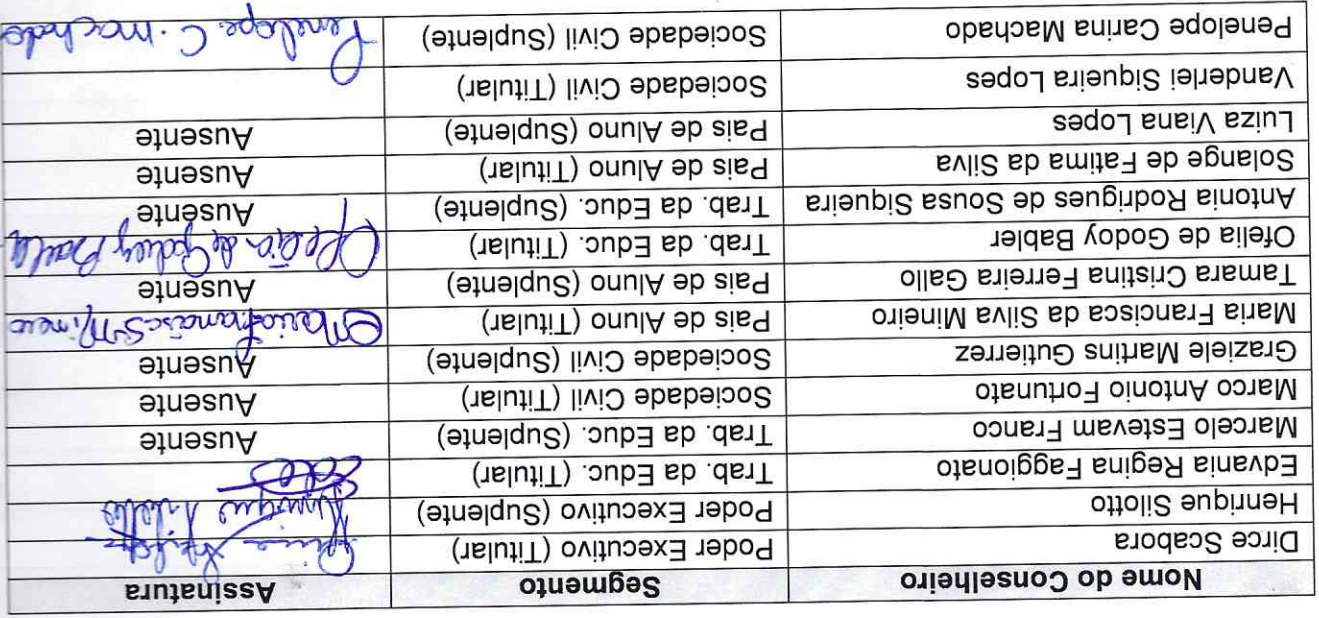 Nome do Conselheiro Segmento Assinatura
Dirce Scabora Poder Executivo (Titular)
Henrique Silotto Poder Executivo (Suplente) Henrique Silotto
Edvania Regina Faggionato Trab. da Educ. (Titular)
Marcelo Estevam Franco Trab. da Educ. (Suplente) Ausente
Marco Antonio Fortunato Sociedade Civil (Titular) Ausente
Graziele Martins Gutierrez Sociedade Civil (Suplente) Ausente
Maria Francisca da Silva Mineiro Pais de Aluno (Titular) Maria Francisca S Mineiro
Tamara Cristina Ferreira Gallo Pais de Aluno (Suplente) Ausente
Ofelia de Godoy Babler Trab. da Educ. (Titular) Ofelia de Godoy
Antonia Rodrigues de Sousa Siqueira Trab. da Educ. (Suplente) Ausente
Solange de Fatima da Silva Pais de Aluno (Titular) Ausente
Luiza Viana Lopes Pais de Aluno (Suplente) Ausente
Vanderlei Siqueira Lopes Sociedade Civil (Titular)
Penelope Carina Machado Sociedade Civil (Suplente) Penelope C. Machado